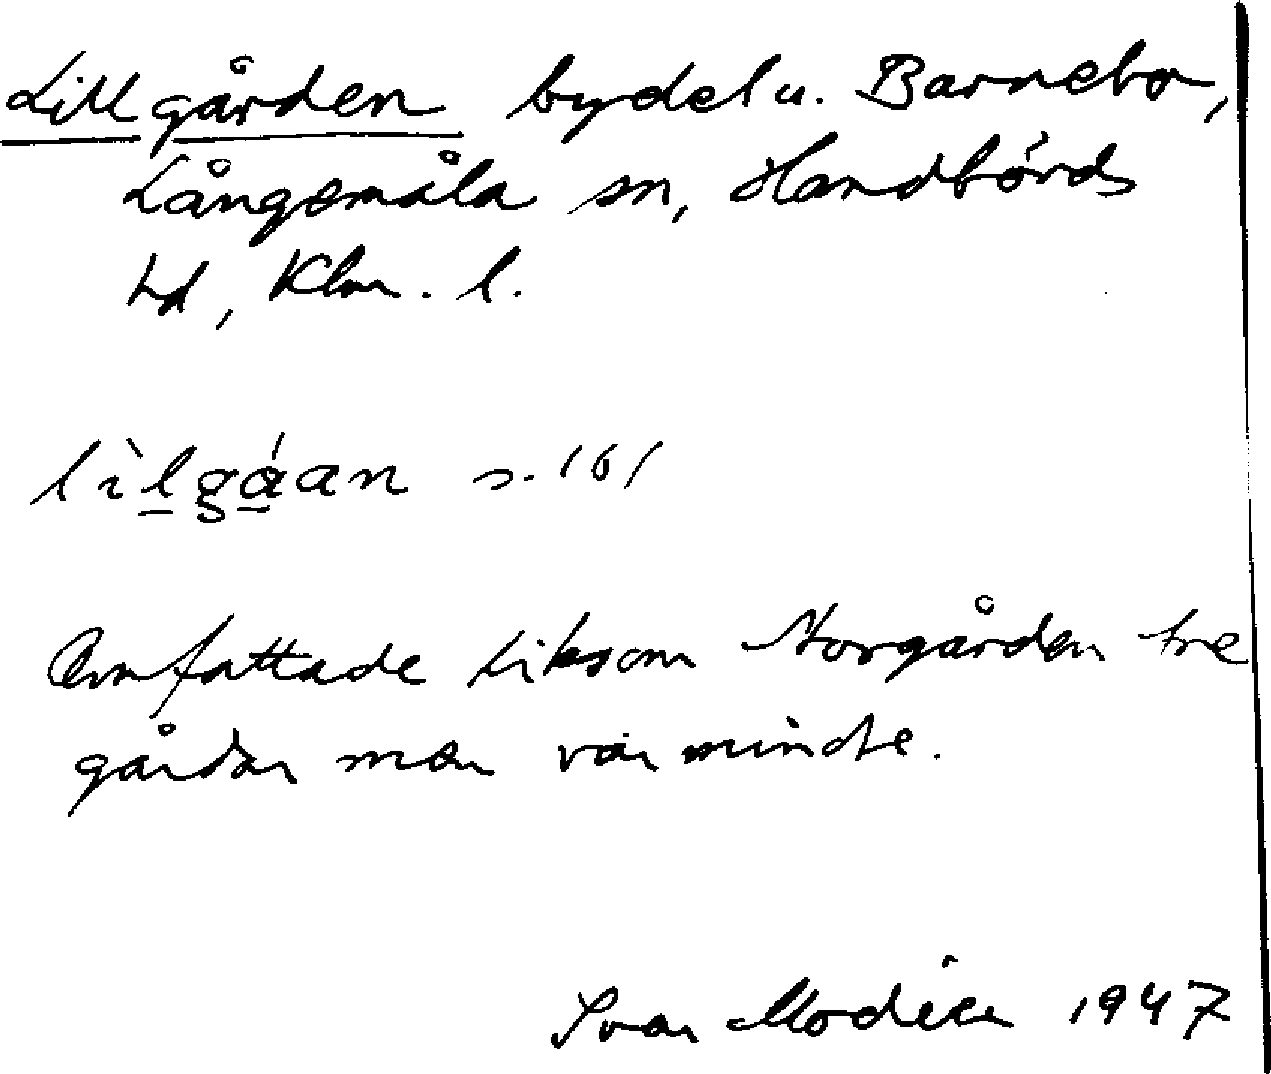 Lillgården bydel u. Barnebo,
Långemåla sn, Handbörds
hd, Klm. l.
lìlgáan s. 161
Omfattade liksom Norgården tre
gårdar men var mindre.
Ivar Modéer 1947